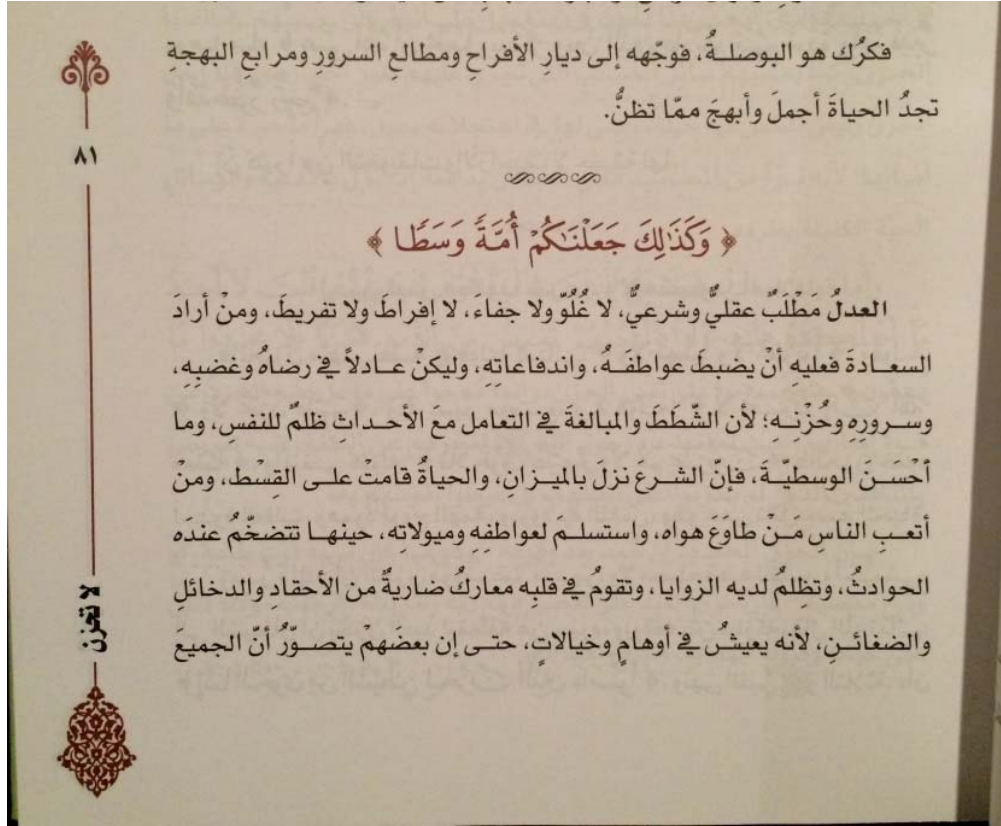 فكرُك هو البوصلةُ، فوجّهه إلى ديارِ الأفراحِ ومطالعِ السرورِ ومرابعِ البهجةِ
تجدُ الحياةَ أجملَ وأبهجَ ممّا تظنُّ.
﴿ وَكَذَٰلِكَ جَعَلْنَٰكُمْ أُمَّةً وَسَطًا ﴾
العدلُ مَطْلَبٌ عقليٌّ وشرعيٌّ، لا غُلُوّ ولا جفاءَ، لا إفراطَ ولا تفريطَ، ومنْ أرادَ
السعــادةَ فعليهِ أنْ يضبطَ عواطفَــهُ، واندفاعاتِهِ، وليكنْ عــادلاً في رضاهُ وغضبِهِ،
وســرورِهِ وحُزْنِــهِ؛ لأن الشَّطَطَ والمبالغةَ في التعامل معَ الأحــداثِ ظلمٌ للنفسِ، وما
أحْسَــنَ الوسطيّــةَ، فإنّ الشــرعَ نزلَ بالميــزانِ، والحياةُ قامتْ علــى القِسْط، ومنْ
أتعــبِ الناسِ مَــنْ طاوَعَ هواه، واستسلــمَ لعواطفِهِ وميولاتِه، حينهــا تتضخّمُ عندَه
الحوادثُ، وتظلمُ لديه الزوايا، وتقومُ في قلبِه معاركُ ضاريةٌ من الأحقادِ والدخائلِ
والضغائــنِ، لأنه يعيشُ في أوهامٍ وخيالاتٍ، حتــى إن بعضَهمْ يتصــوّرُ أنّ الجميعَ
٨١
لا تحزن